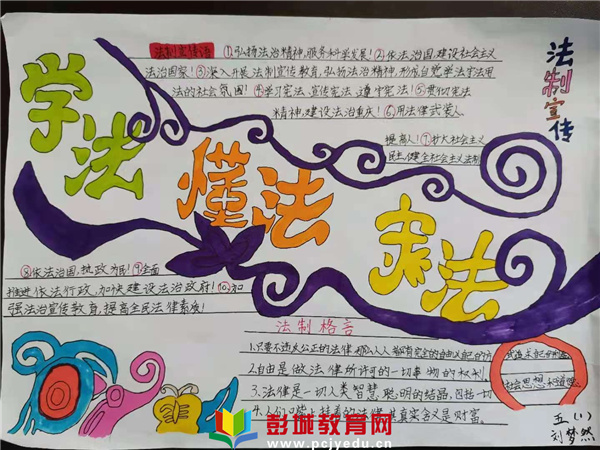 学法
懂法
守法
法制宣传
法制宣传语 ①弘扬法治精神,服务科学发展!②依法治国,建设社会主义
法治国家!③深入开展法制宣传教育,弘扬法治精神,形成自觉学法守法用
法的社会氛围!④学习宪法,宣传宪法,遵守宪法!⑤贯彻宪法
精神,建设法治重庆!⑥用法律武装人
提高人!⑦扩大社会主义
民主,健全社会主义法制
⑧依法治国,执政为民!⑨全面
推进依法行政,加快建设法治政府!⑩加
强法治宣传教育,提高全民法律素质!
法制格言
1.只要不违反公正的法律,那么人人都有完全的自由以自己的方
2.自由是做法律所许可的一切事物的权利.
3.法律是一切人类智慧聪明的结晶,包括一切
社会思想和道德
4.人们嘴上挂着的法律,其真实含义是财富。
五(1)
刘梦然
彭城教育网
www.pcjyedu.cn